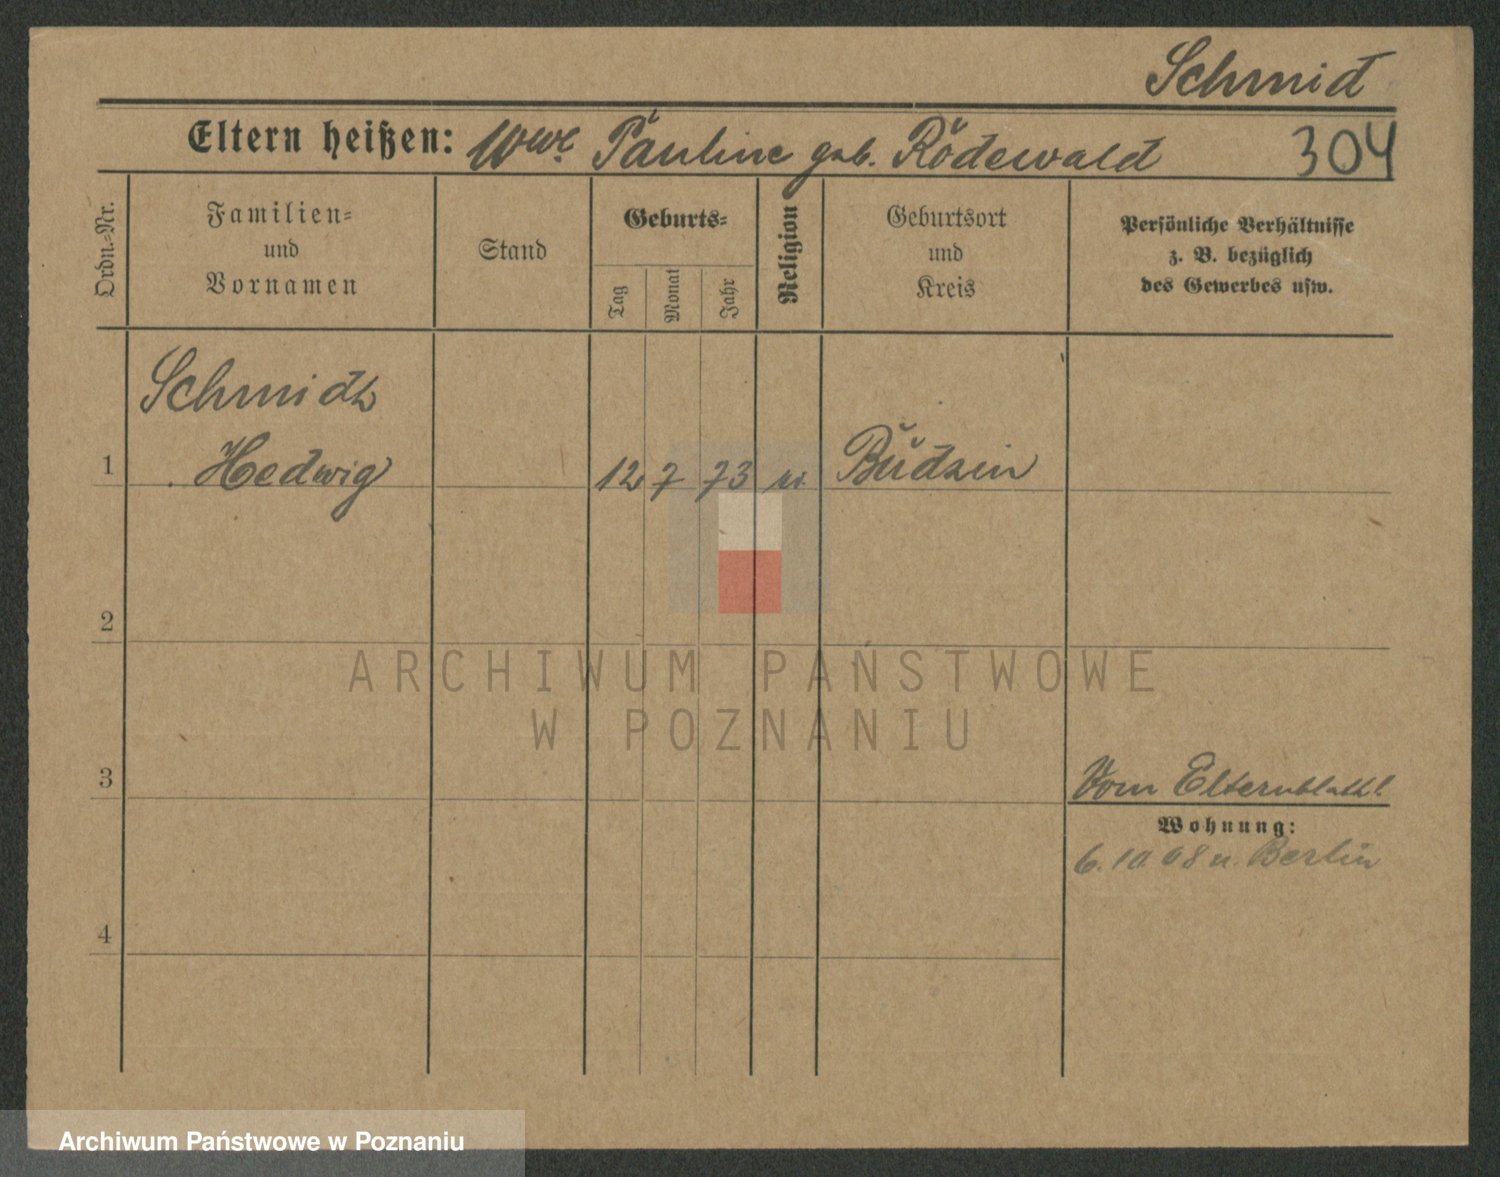 Schmid
Eltern heißen: Wwe. Pauline geb. Rodewald 304
Ordn.-Nr.
Familien-
und
Vornamen
Stand
Geburts-
Tag
Monat
Jahr
Religion
Geburtsort
und
Kreis
Persönliche Verhältnisse
z. B. bezüglich
des Gewerbes usw.
Schmidt
1 Hedwig 12 7 73 Budzin
2
ARCHIWUM PAŃSTWOWE
W POZNANIU
3 Vom Elternblatt
Wohnung:
6. 10. 08 n. Berlin
4
Archiwum Państwowe w Poznaniu